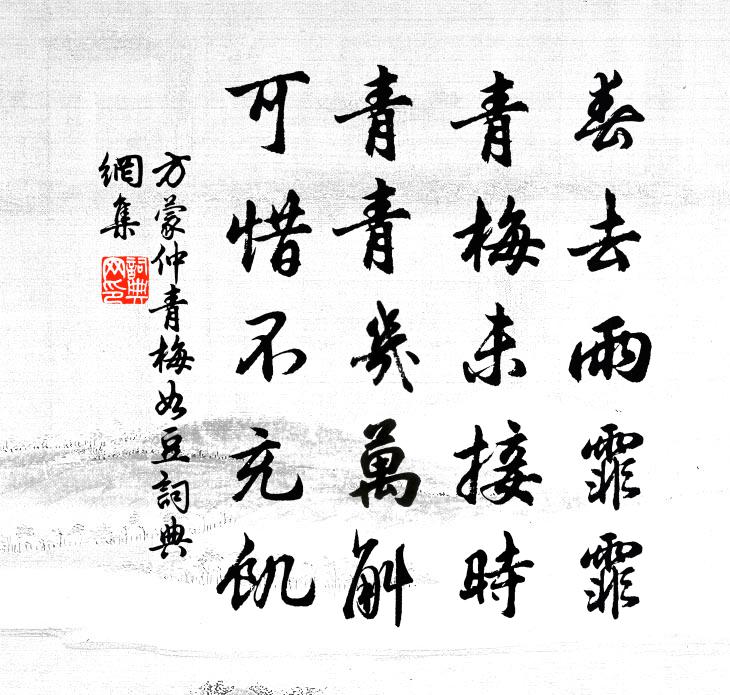 春去雨霏霏
青梅未接時
青青幾萬斛
可惜不充飢
方蒙仲青梅如豆詞典
網集
詞典
网印